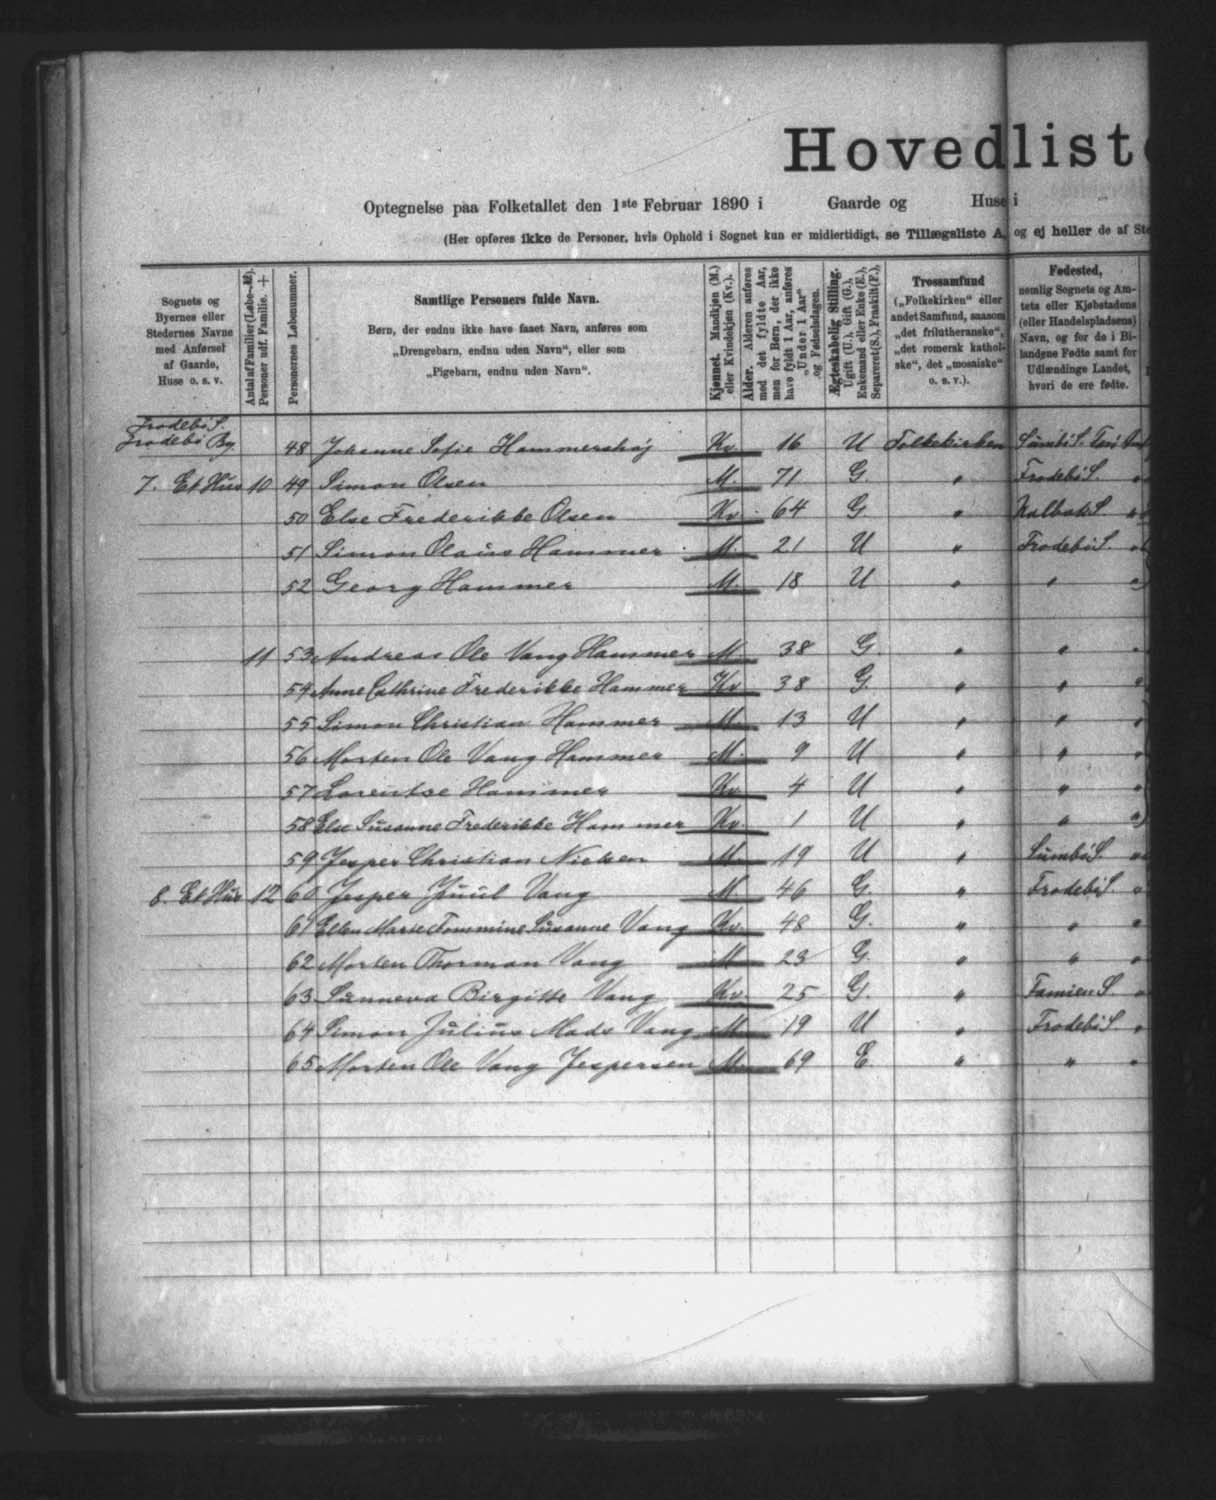 Hovedliste
Optegnelse paa Folketallet den 1ste Februar 1890 i Gaarde og Huse i
(Her opføres ikke de Personer, hvis Ophold i Sognet kun er midlertidigt, se Tillægsliste A, og ej heller de af
Sognets og
Byernes eller
Stedernes Navne
med Anførsel
af Gaarde,
Huse o. s. v.
Antal af Familier (Løbe-№).
Personer udf. Familie. +
Personernes Løbenummer.
Samtlige Personers fulde Navn.
Børn, der endnu ikke have faaet Navn, anføres som
„Drengebarn, endnu uden Navn", eller som
„Pigebarn, endnu uden Navn".
Kjønnet. Mandkjøn (M.)
eller Kvindekjøn (Kv.).
Alder. Alderen anføres
med det fyldte Aar,
men for Børn, der ikke
have fyldt 1 Aar, anføres
„Under 1 Aar"
og Fødselsdagen.
Ægteskabelig Stilling.
Ugift (U.), Gift (G.),
Enkemand eller Enke (E.),
Separeret (S.), Fraskilt (F.).
Trossamfund
(„Folkekirken" eller
andet Samfund, saasom
„det frilutheranske",
„det romersk kathol-
ske", det „mosaiske"
o. s. v.).
Fødested,
nemlig Sognets og Am-
tets eller Kjøbstadens
(eller Handelspladsens)
Navn, og for de i Bi-
landene Fødte samt for
Udlændinge Landet,
hvori de ere fødte.
Frodebø S.
Frodebø By. 48 Johanne Sofie Hammershøj Kv. 16 U Folkekirken Sumbø S.
7. Et Hus 10 49 Simon Olsen M. 71 G. " Frodebø S. "
50 Else Frederikke Olsen Kv. 64 G " Kalbak S "
51 Simon Olaus Hammer M. 21 U " Frodebø S. "
52 Georg Hammer M. 18 U " " "
11 53 Andreas Ole Vang Hammer M. 38 G. " " "
54 Anne Cathrine Frederikke Hammer Kv. 38 G. " " "
55 Simon Christian Hammer M. 13 U " " "
56 Morten Ole Vang Hammer M. 9 U " " "
57 Lorentse Hammer Kv. 4 U " " "
58 Else Susanne Frederikke Hammer Kv. 1 U " " "
59 Jesper Christian Nielsen M. 19 U " Sumbø S. "
8. Et Hus 12 60 Jesper Juul Vang M. 46 G. " Frodebø S. "
61 Ellen Marie Tommine Susanne Vang Kv. 48 G. " " "
62 Morten Thorman Vang M. 23 G. " " "
63 Sunneva Birgitte Vang Kv. 25 G. " Famien S. "
64 Simon Julius Mads Vang M. 19 U " Frodebø S. "
65 Morten Ole Vang Jespersen M. 69 E. " " "